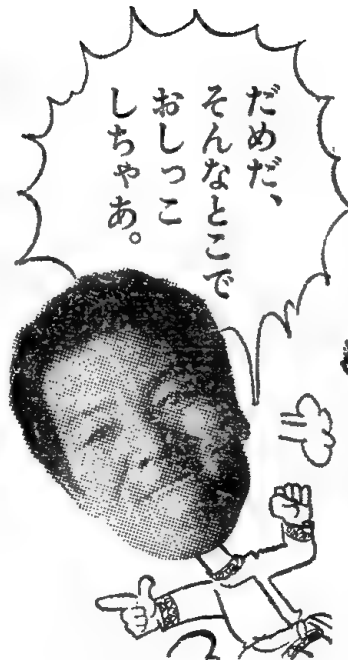 だめだ、
そんなとこで
おしっこ
しちゃあ。